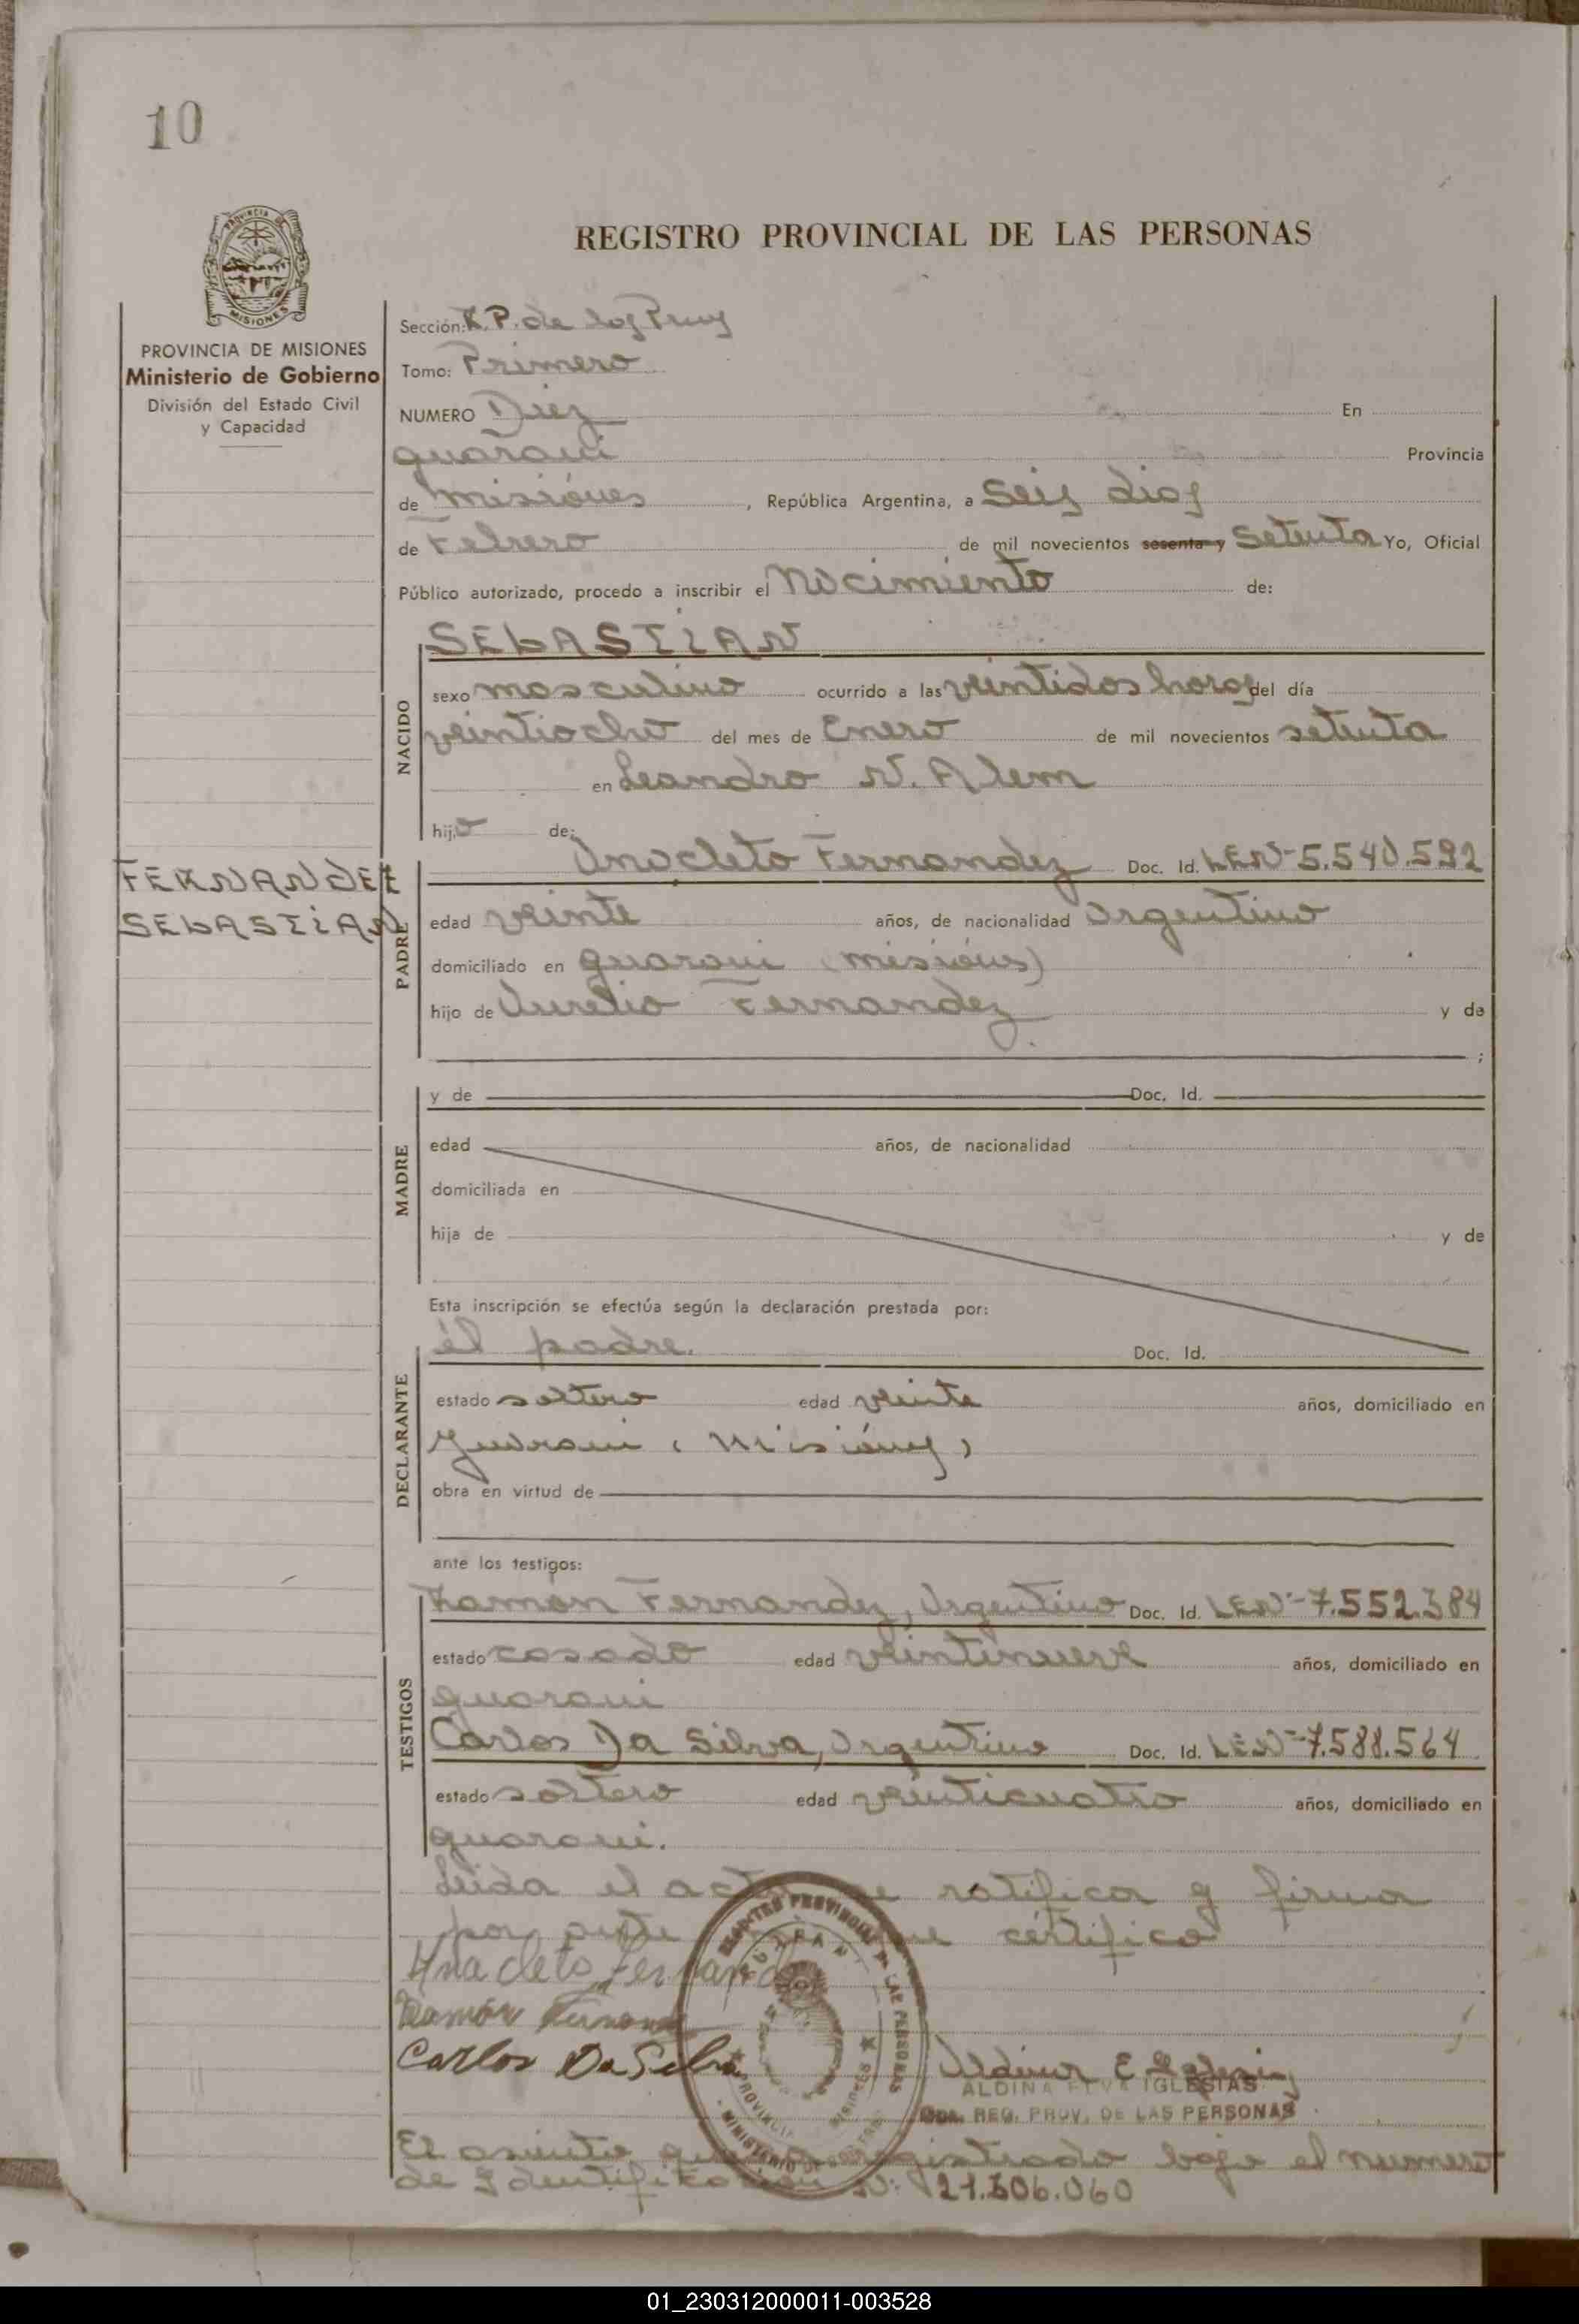 10
REGISTRO PROVINCIAL DE LAS PERSONAS
MISIONES
PROVINCIA DE MISIONES
Ministerio de Gobierno
División del Estado Civil
y Capacidad
Sección: R.P. de las
Tomo: Primero
NUMERO Diez En
guarani Provincia
de misiónes, República Argentina, a Seis dias
de Febrero de mil novecientos sesenta y Setenta Yo, Oficial
Público autorizado, procedo a inscribir el Nacimiento de:
SEBASTIAN
NACIDO
sexo masculino ocurrido a las veintidos horas del día
veintiocho del mes de Enero de mil novecientos setenta
en Leandro N. Alem
hijo de:
Anacleto Fernandez Doc. Id. LEN- 5.540.592
FERNANDEZ
SEBASTIAN
PADRE
edad veinte años, de nacionalidad argentino
domiciliado en guarani (misiónes)
hijo de Aurelio Fernandez y de
;
MADRE
y de Doc. Id.
edad años, de nacionalidad
domiciliada en
hija de y de
Esta inscripción se efectúa según la declaración prestada por:
él padre. Doc. Id.
DECLARANTE
estado soltero edad veinte años, domiciliado en
guarani (Misiónes)
obra en virtud de
ante los testigos:
TESTIGOS
Ramón Fernandez, Argentino Doc. Id. LEN- 7.552.384
estado casado edad veintinueve años, domiciliado en
guarani
Carlos Da Silva, Argentino Doc. Id. LEN- 7.588.564
estado soltero edad veinticuatro años, domiciliado en
guarani.
Leida el acta se ratifica y firma
por ante que cértifico
Anacleto Fernand
Ramón Fernand
Carlos Da Silva
Aldina E. Iglesias
ALDINA ELVA IGLESIAS
REG. PROV. DE LAS PERSONAS
REGISTRO PROVINCIAL DE LAS PERSONAS
PROVINCIA MISIONES
MINISTERIO DE GOBIERNO
El asiento registrado bajo el numero
de Identificacion N: 21.306.060
01_230312000011-003528